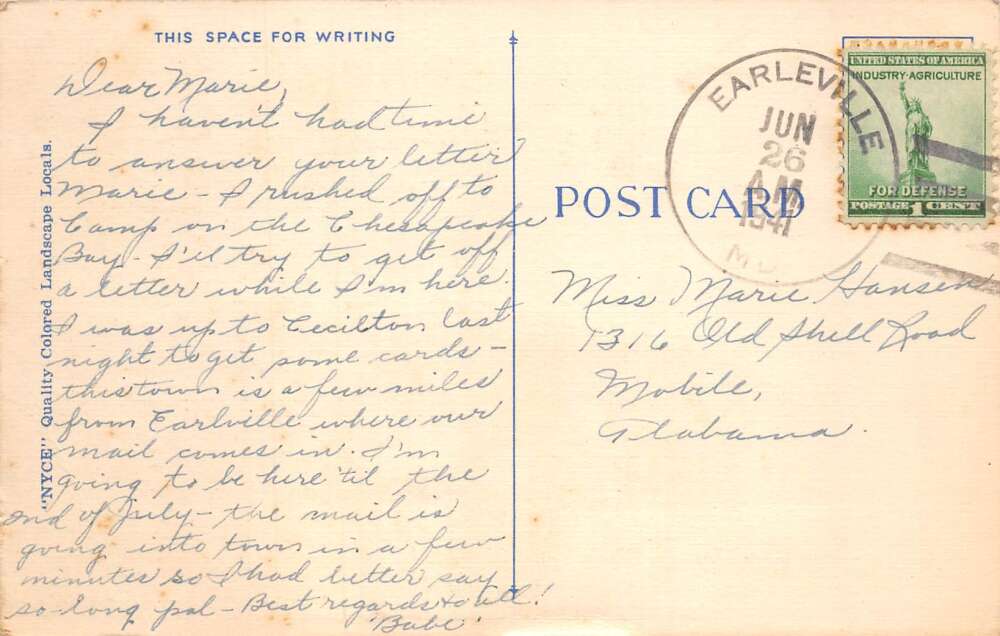 THIS SPACE FOR WRITING
Dear Marie,
I haven't had time
to answer your letter
Marie - I rushed off to
Camp on the Chesapeake
Bay - I'll try to get off
a letter while I'm here.
I was up to Cecilton last
night to get some cards -
this town is a few miles
from Earlville where our
mail comes in. I'm
going to be here 'til the
end of July - the mail is
going into town in a few
minutes so I had better say
so-long pal - Best regards to all!
'Babe'
"NYCE" Quality Colored Landscape Locals.
POST CARD
EARLEVILLE
JUN
26
AM
1941
MD.
UNITED STATES OF AMERICA
INDUSTRY·AGRICULTURE
FOR DEFENSE
POSTAGE 1 CENT
Miss Marie Hansen
1316 Old Shell Road
Mobile,
Alabama.